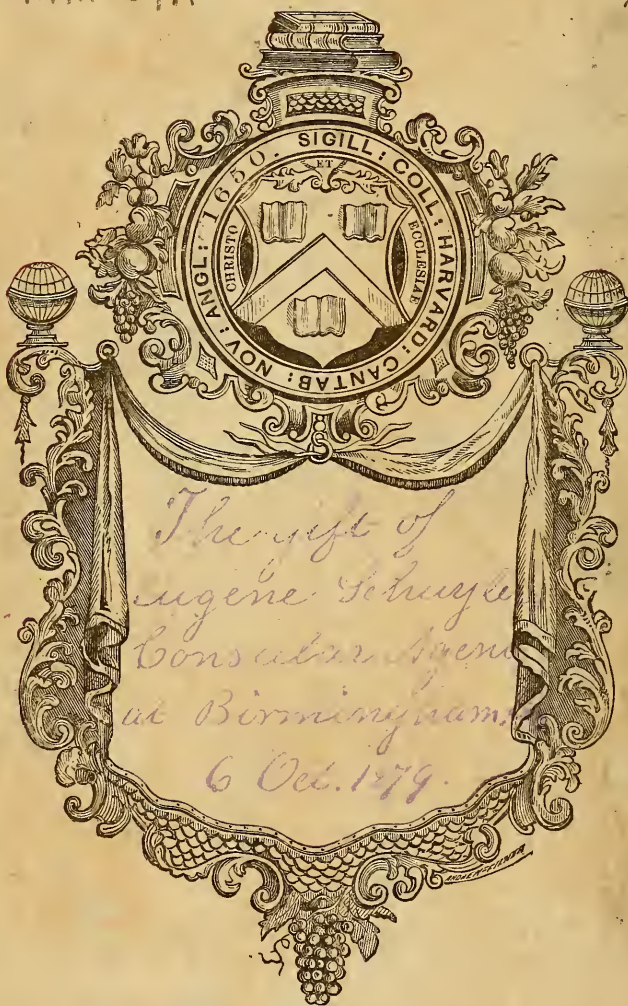 SIGILL: COLL: HARVARD: CANTAB: NOV: ANGL: 1650.
ET
CHRISTO
ECCLESIAE
The gift of
Eugene Schuyler
Consular Agent
at Birmingham,
6 Oct. 1879.